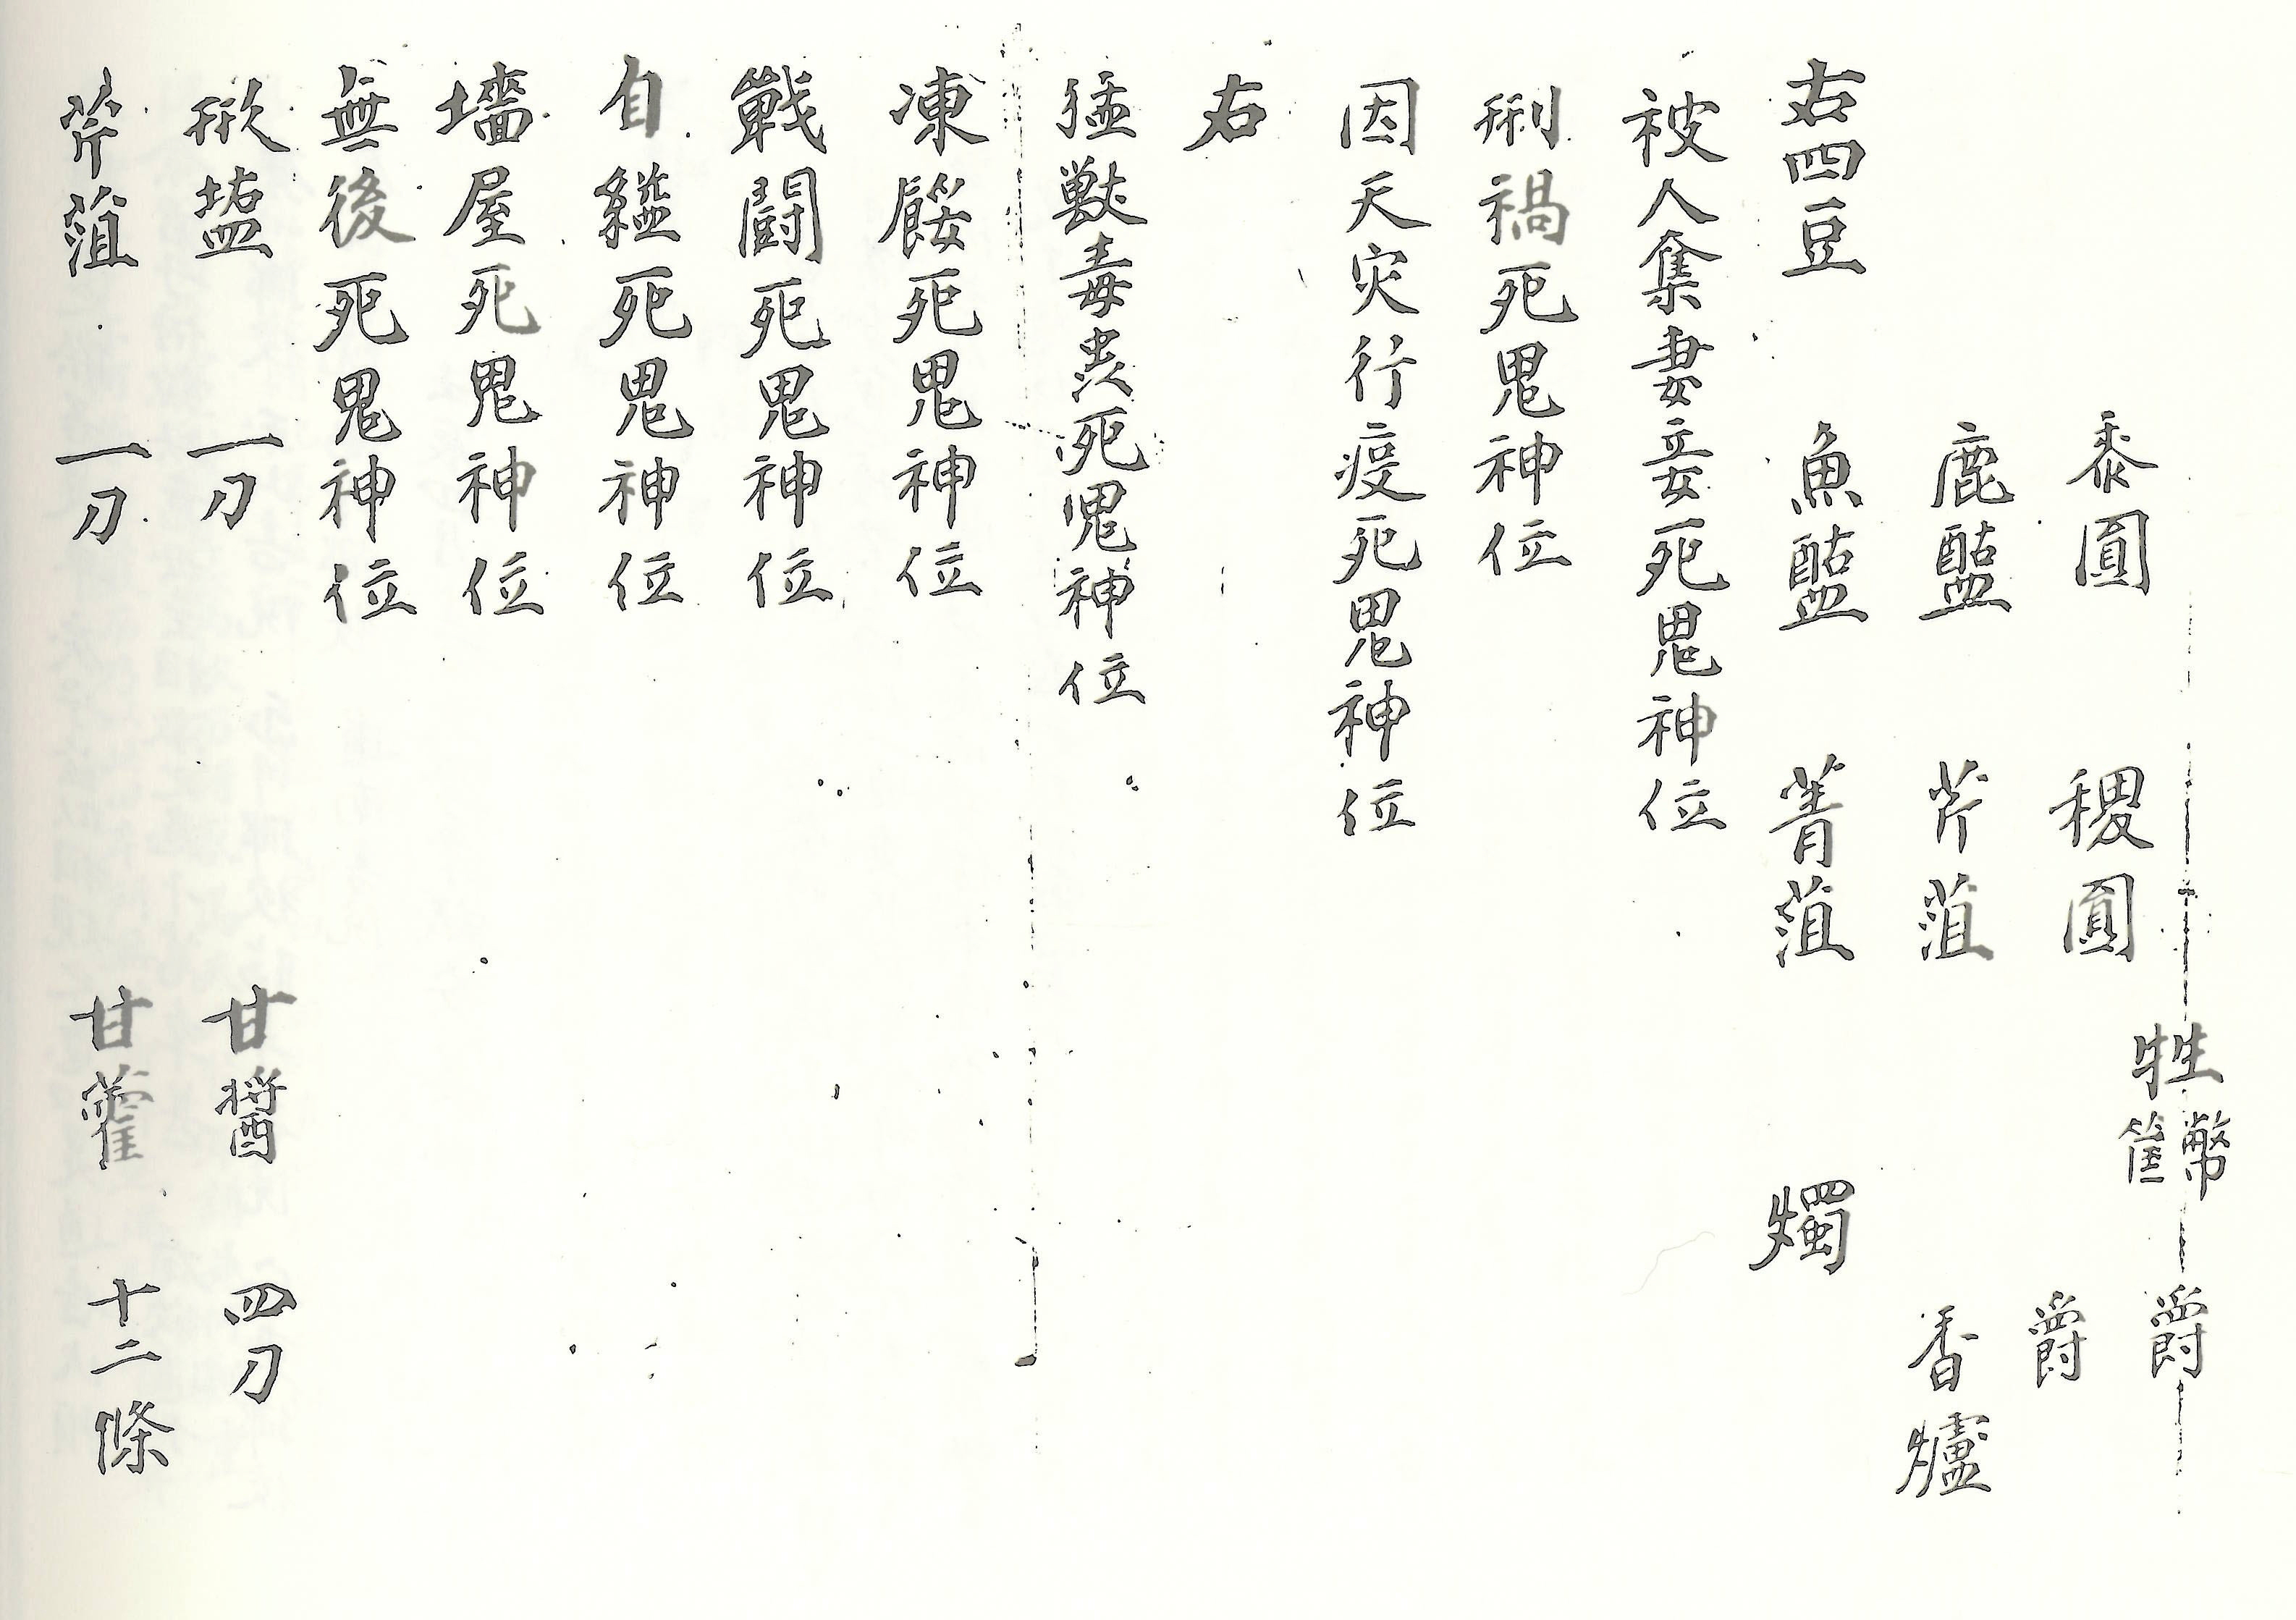 牲 幣筐 爵
黍圓 稷圓 爵
鹿醢 芹菹 香爐
右四豆 魚醢 菁菹 燭
被人奪妻妾死鬼神位
刑禍死鬼神位
因天灾行疫死鬼神位
右
猛獸毒虫死鬼神位
凍餒死鬼神位
戰闘死鬼神位
自縊死鬼神位
墻屋死鬼神位
無後死鬼神位
形塩 一刀 甘醬 四刀
芹菹 一刀 甘藿 十二條